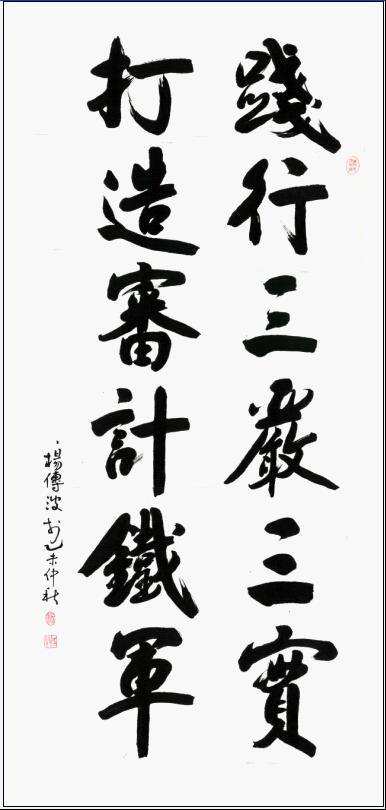 踐行三嚴三實
打造審計鐵軍
楊傳波於乙未仲秋